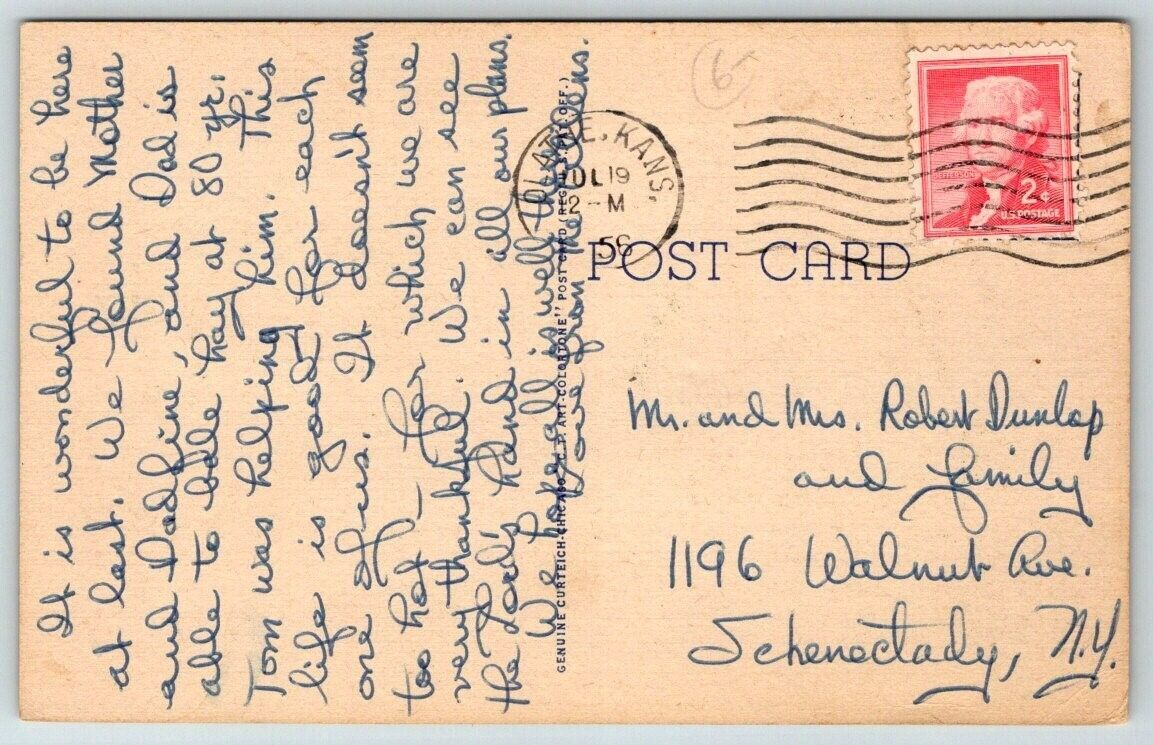 It is wonderful to be here
at last. We found Mother
and Dad fine, and Dad is
able to bale hay at 80 yr:
Tom was helping him. This
life is good for each
one of us. It doesn't seem
too hot — for which we are
very thankful. We can see
the Lord's hand in all our plans.
We hope all is well there.
Love from the Allens.
GENUINE CURTEICH-CHICAGO "C.T. ART-COLORTONE" POST CARD (REG. U.S. PAT. OFF.)
6-
OLATHE, KANS.
JUL 19
2-M
56
JEFFERSON
2¢
U.S. POSTAGE
POST CARD
Mr. and Mrs. Robert Dunlap
and family
1196 Walnut Ave.
Schenectady, N.Y.